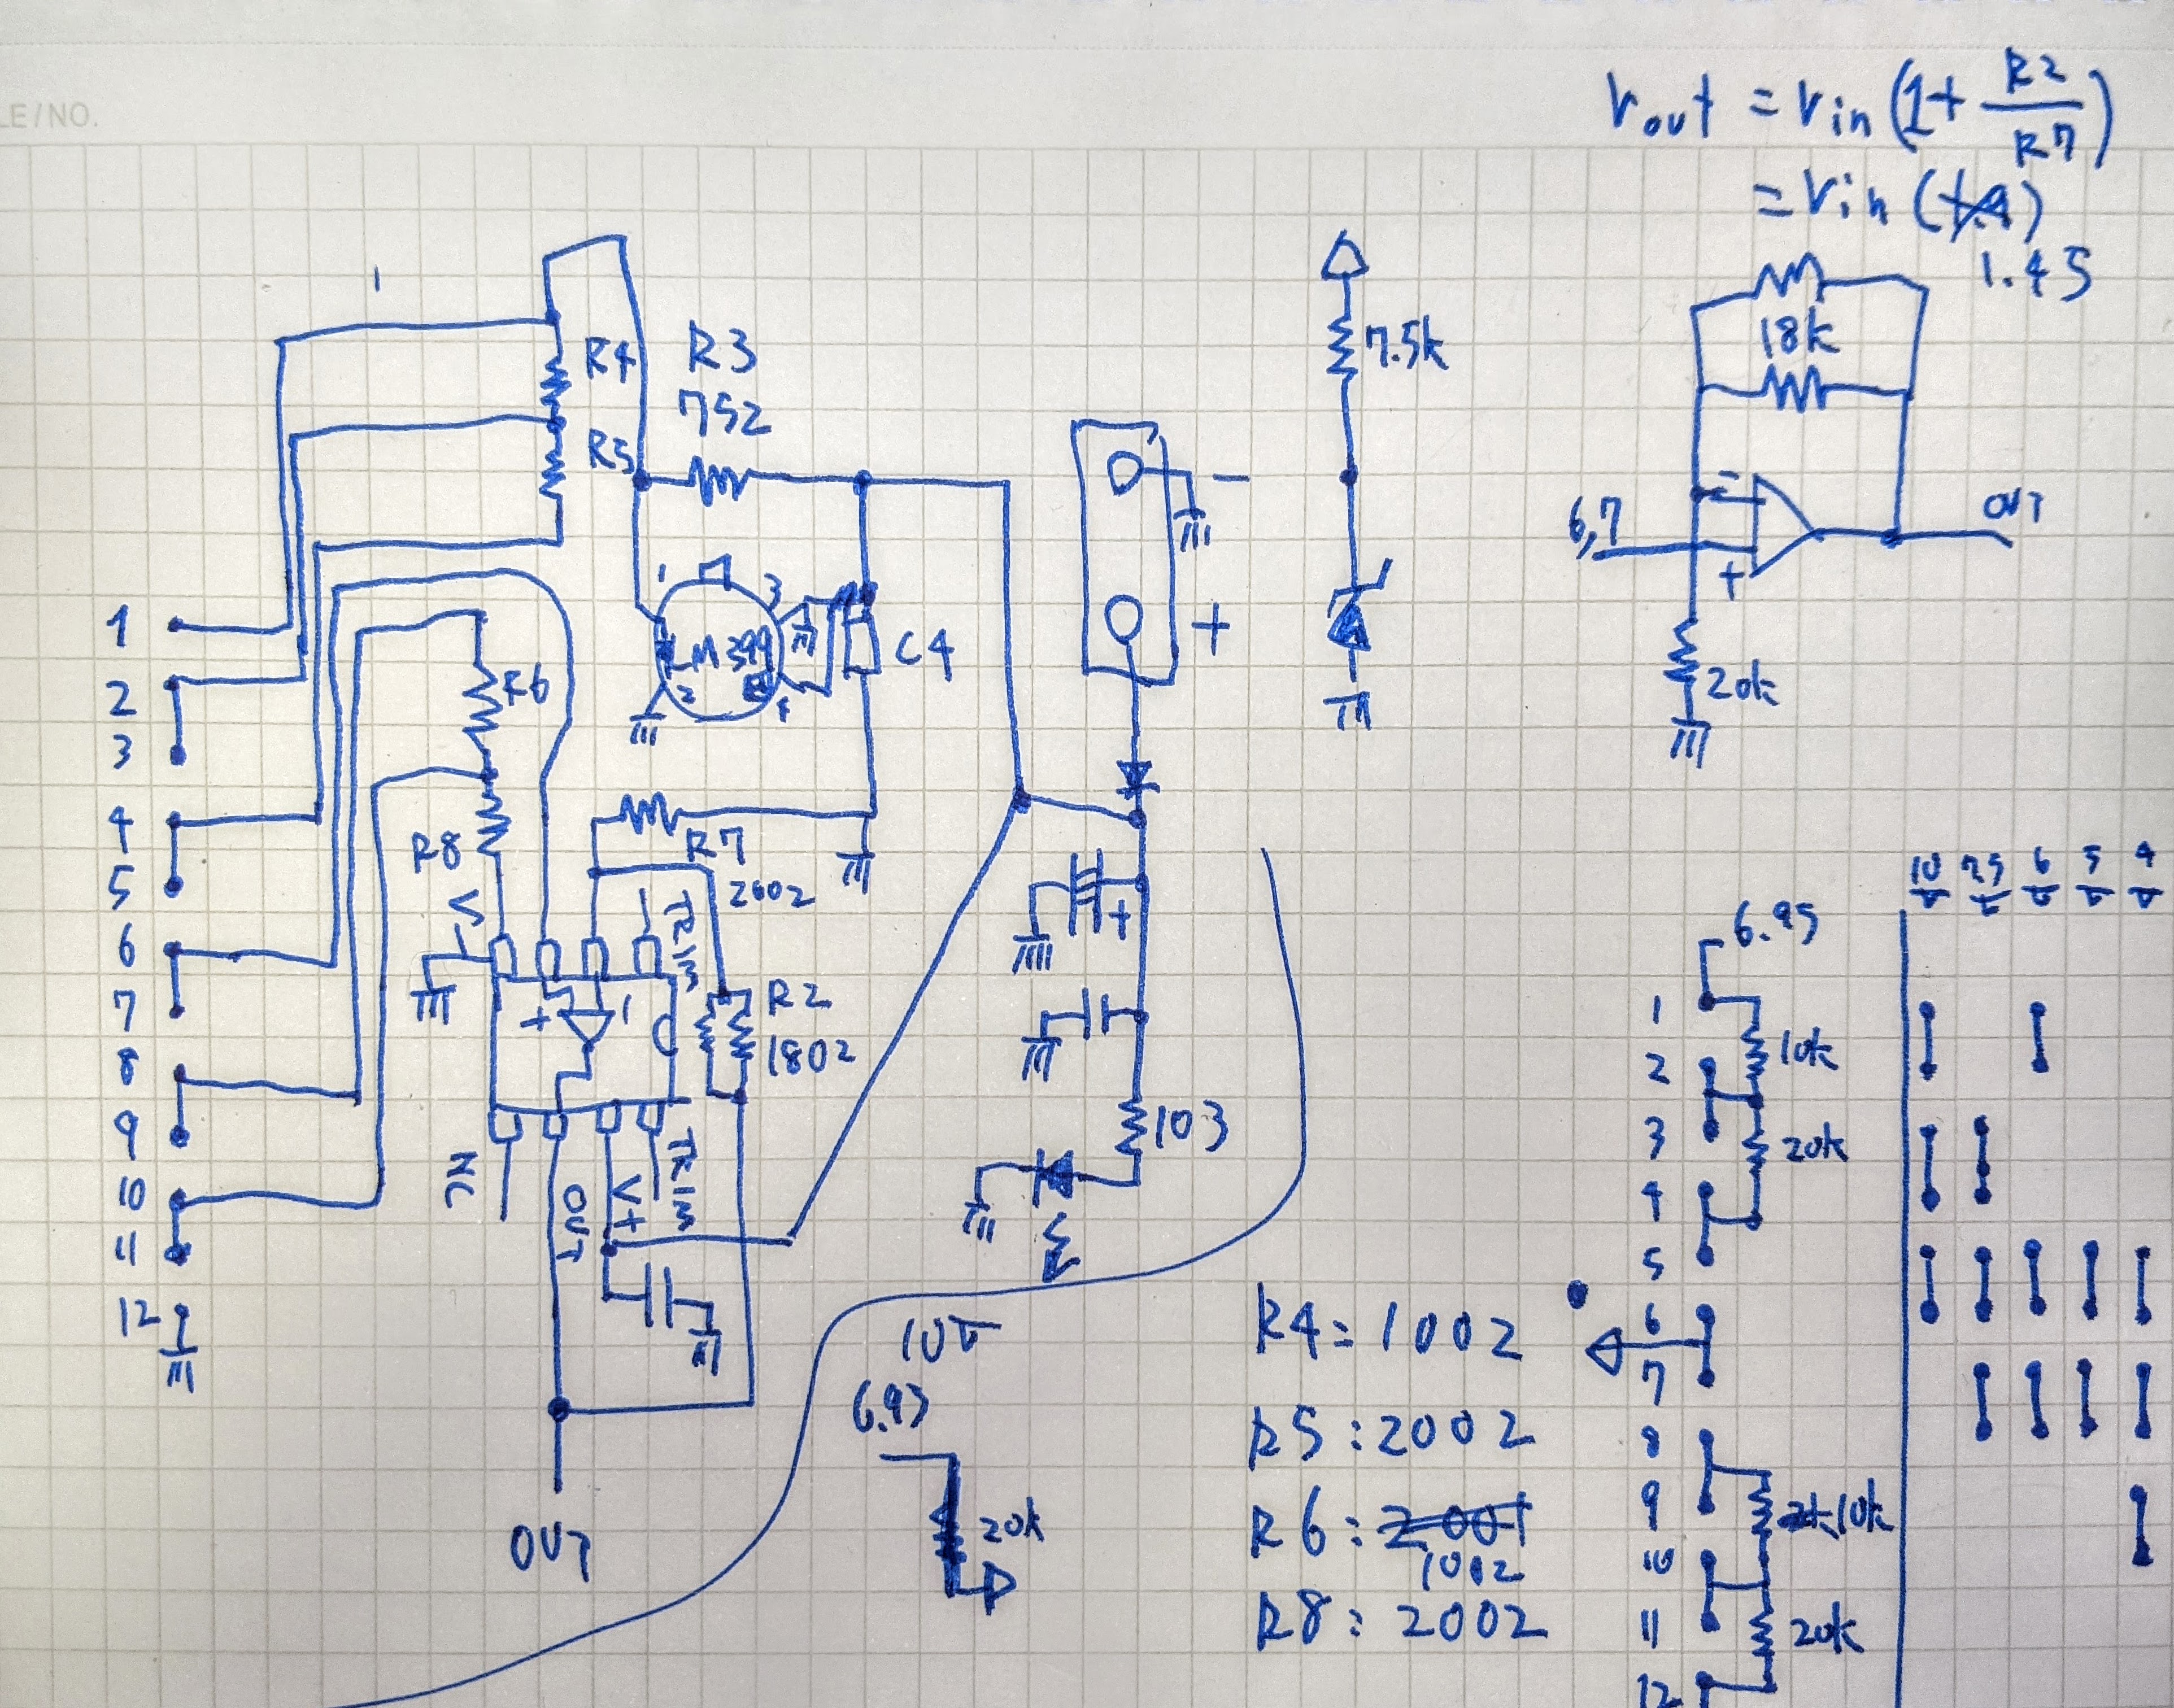 LE/NO.
Vout = Vin (1 + R2/R7)
= Vin (1.9)
1.45
R4
R3
752
R5
7.5k
18k
-
+
6,7
OUT
20k
1
2
3
4
5
6
7
8
9
10
11
12
1
3
LM399
2
4
C4
-
+
R6
R8
R7
2002
V-
TRIM
+
-
R2
1802
NC
OUT
V+
TRIM
OUT
+
103
10V
6.93
20k
R4: 1002
R5: 2002
R6: 2001
1002
R8: 2002
6.95
10V 7.5V 6V 5V 4V
1
2
3
4
5
6
7
8
9
10
11
12
10k
20k
2k 10k
20k